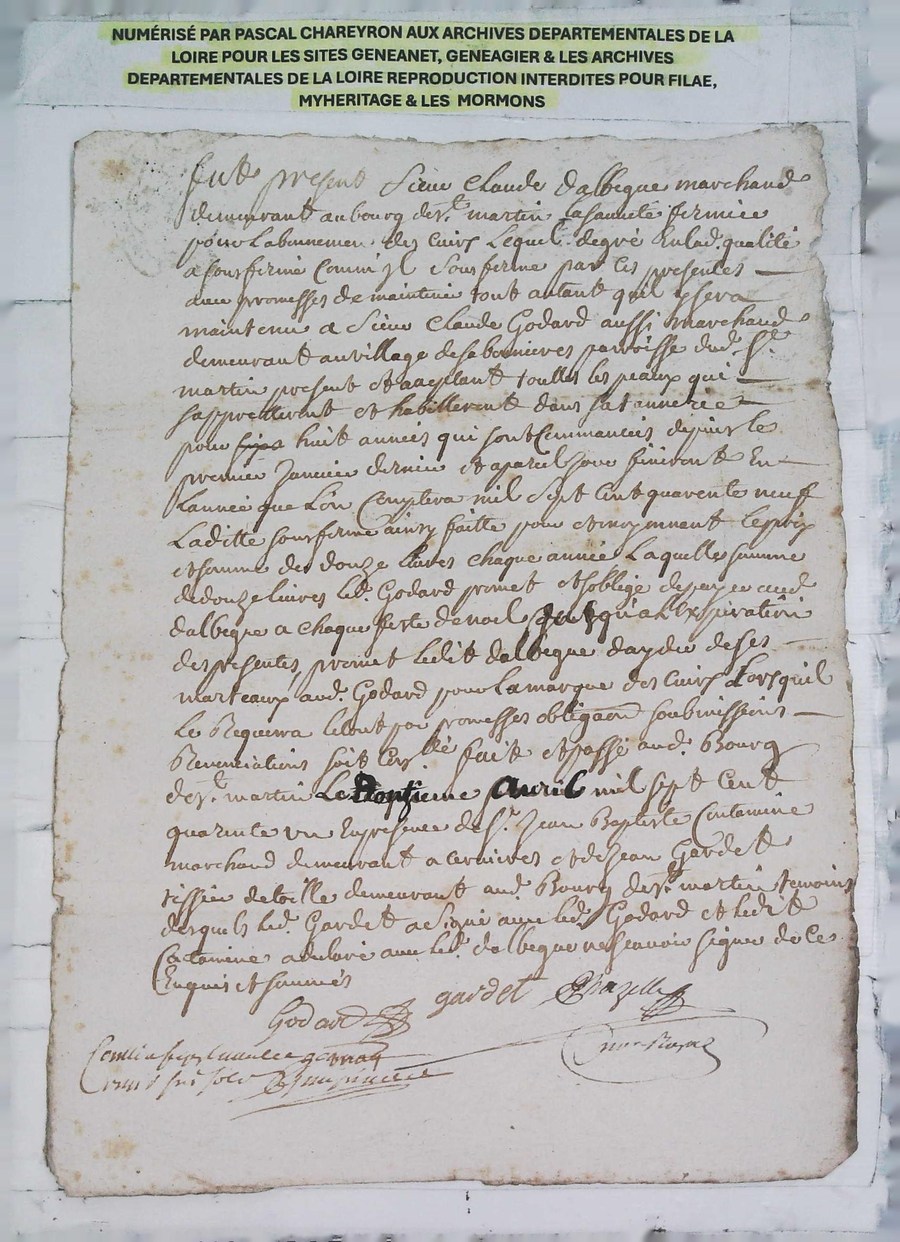 NUMÉRISÉ PAR PASCAL CHAREYRON AUX ARCHIVES DEPARTEMENTALES DE LA
LOIRE POUR LES SITES GENEANET, GENEAGIER & LES ARCHIVES
DEPARTEMENTALES DE LA LOIRE REPRODUCTION INTERDITES POUR FILAE,
MYHERITAGE & LES MORMONS
fut present Sieur Claude dalbegue marchand
demeurant au bourg de St martin la sauveté fermier
pour labonnement des cuirs Lequel de gré En lad. qualité
a sousfermé comm'jl sousferme par les presentes
avec promesses de maintenir tout autant quil sera
maintenu a Sieur Claude Godard aussi marchand
demeurant au village de parroisse dud. St
martin present et acceptant touttes les peaux qui
sappretteront et habilleront dans sa tannerie
pour huit années qui sont Commancées depuis le
premier Janvier dernier et a pareil jour finiront En
Lannée que L'on Comptera mil sept cent quarente neuf
Laditte sousferme ainsy faitte pour et moyennant le prix
et somme de douze livres chaque année Laquelle somme
de douze livres led. Godard promet et soblige de payer aud.
dalbegue a chaque feste de noel jusqu'a Lexpiration
des presentes, promet ledit dalbegue dayder de ses
marteaux aud. Godard pour la marque des cuirs Lorsquil
Le Requerra le tout par promesses obligaon soubmissions
Renonciations fait et passé aud. Bourg
de St martin Le avril mil sept cent
quarente un En presence de Sr. Jean Baptiste Contamine
marchand demeurant a cervieres et de Jean Gardet
tissier de toille demeurant aud. Bourg de St martin temoins
desquels led. Gardet a signé avec led. Godard et ledit
Contamine a declaré avec led. dalbegue ne scavoir signer de ce
Enquis et sommés
Godard gardet